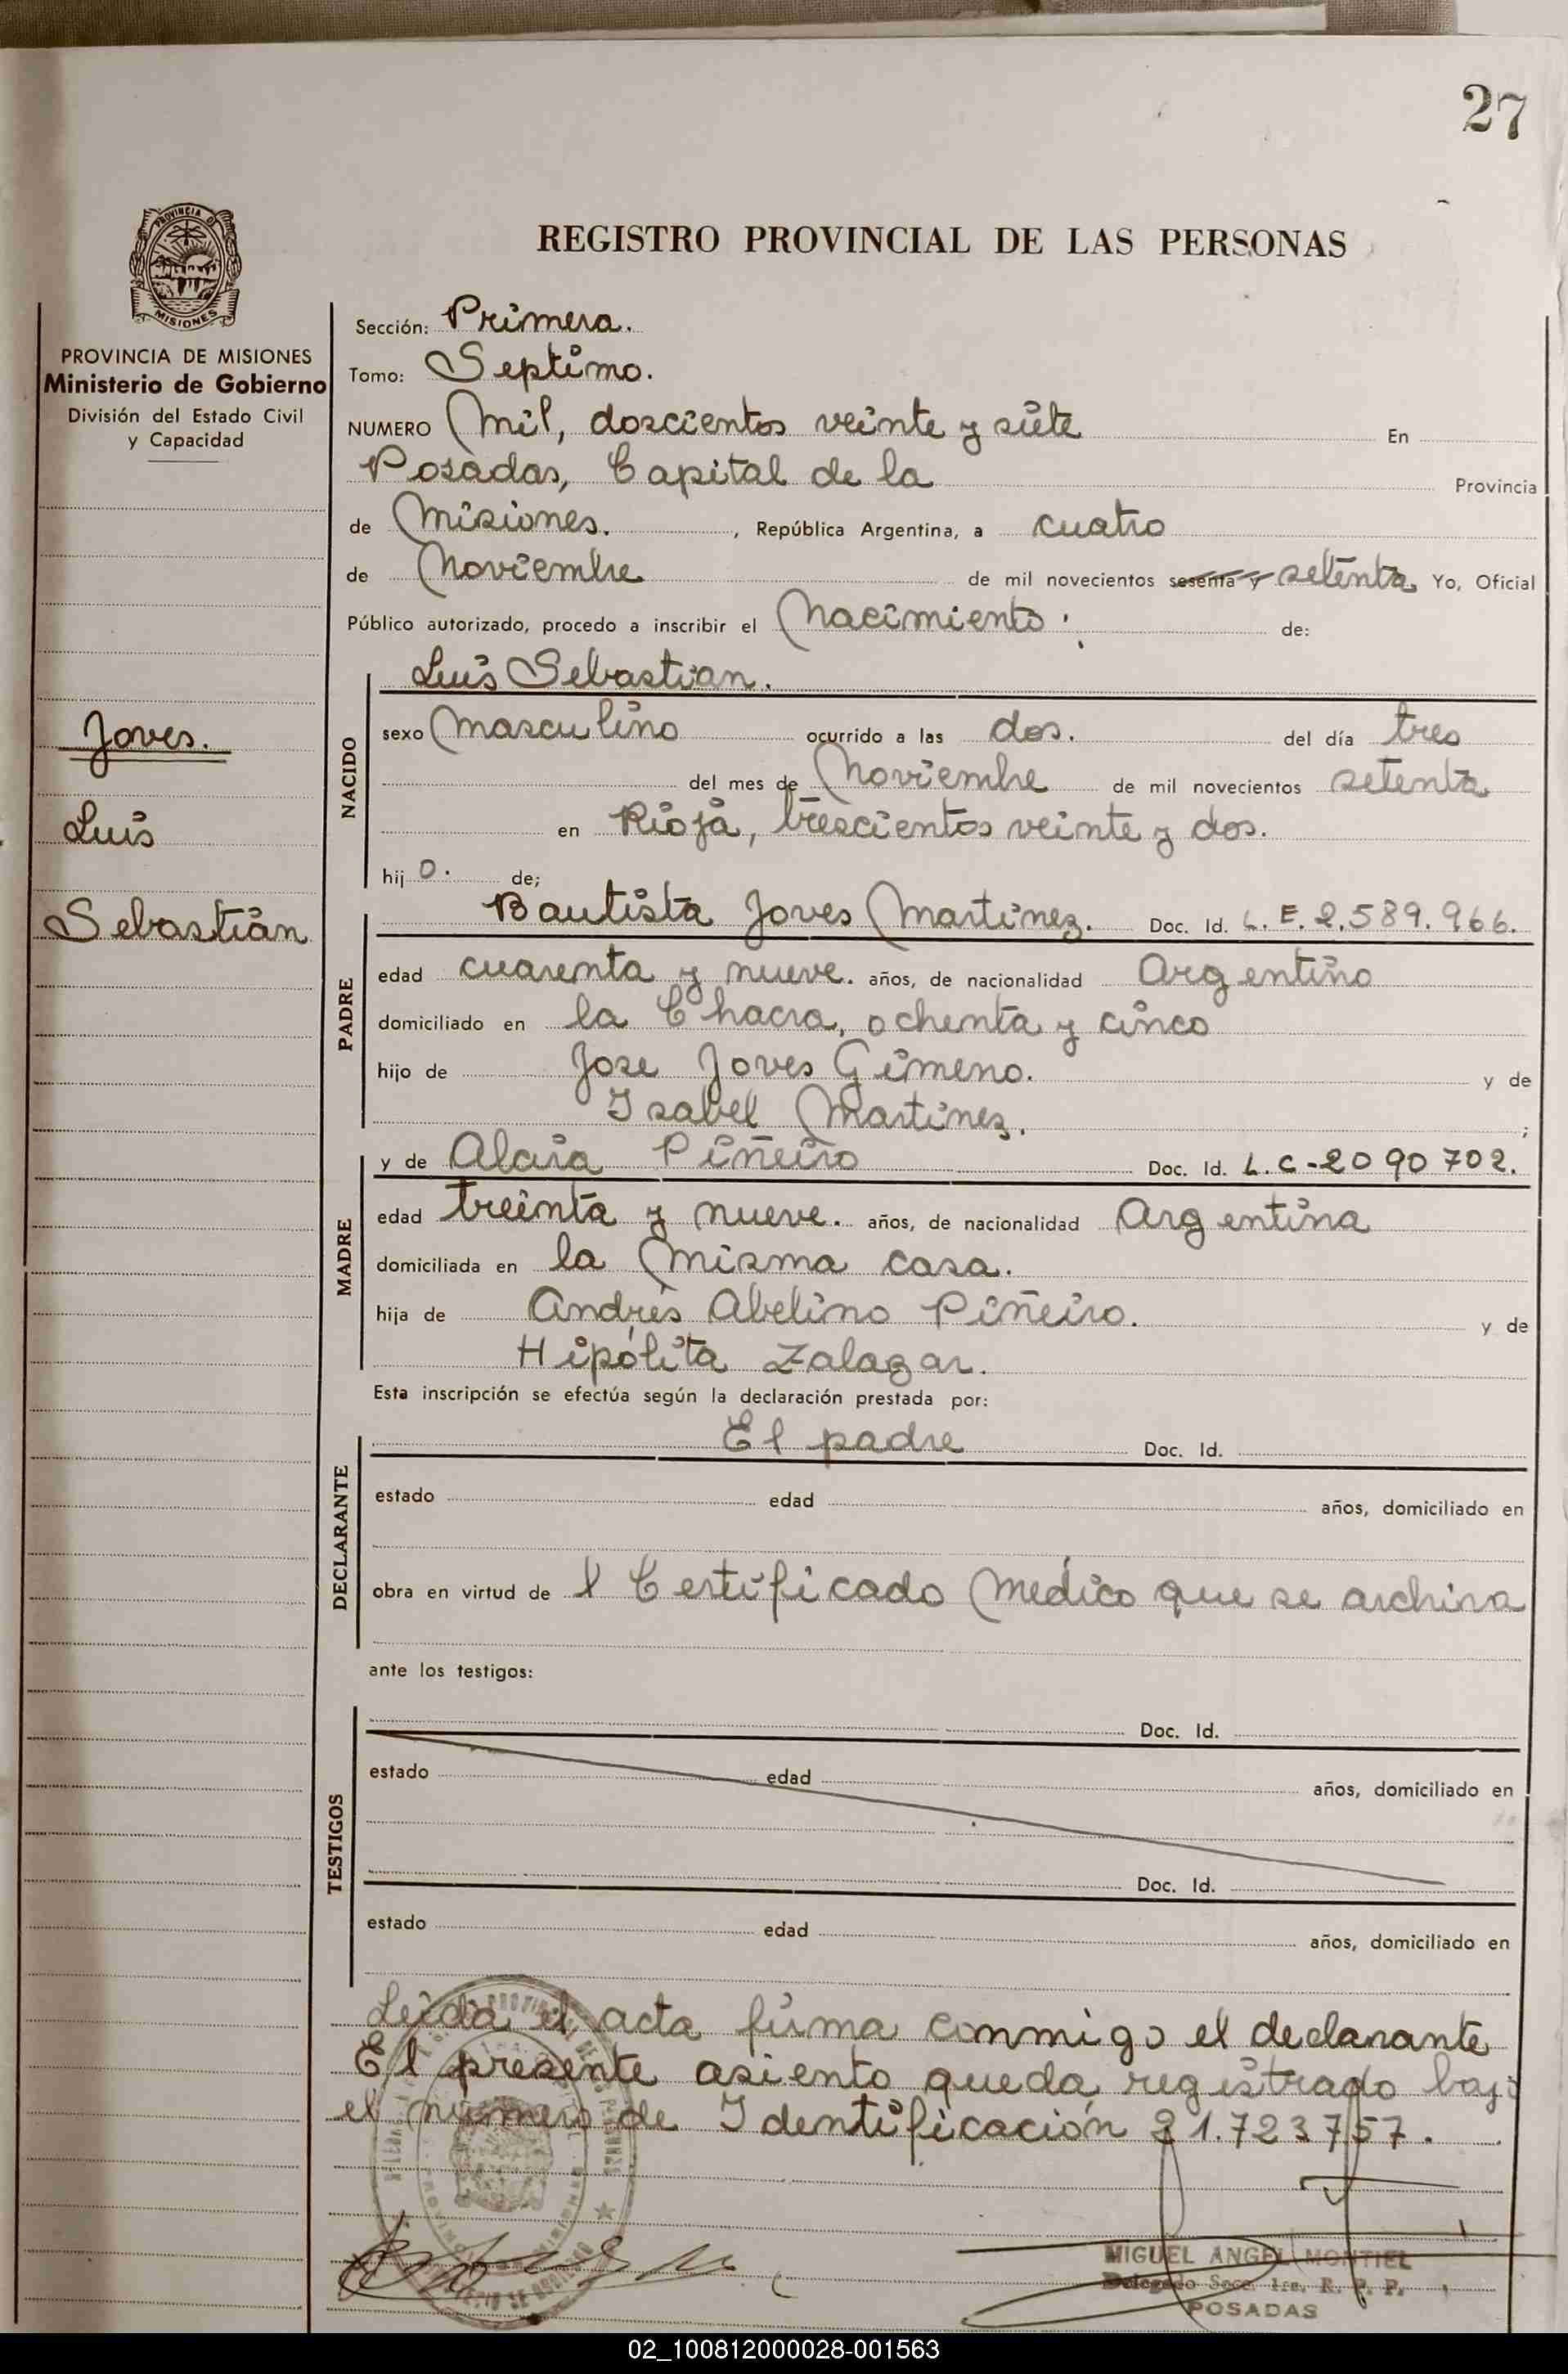 27
REGISTRO PROVINCIAL DE LAS PERSONAS
PROVINCIA DE MISIONES
Ministerio de Gobierno
División del Estado Civil
y Capacidad
Joves.
Luis
Sebastián
Sección: Primera.
Tomo: Septimo.
NUMERO Mil, doscientos veinte y siete En
Posadas, Capital de la Provincia
de Misiones. , República Argentina, a cuatro
de Noviembre de mil novecientos sesenta y setenta Yo, Oficial
Público autorizado, procedo a inscribir el Nacimiento: de:
NACIDO
Luis Sebastian.
sexo Masculino ocurrido a las dos. del día tres
del mes de Noviembre de mil novecientos setenta
en Rioja, trescientos veinte y dos.
hij o. de;
PADRE
Bautista Joves Martinez. Doc. Id. L.E. 2.589.966.
edad cuarenta y nueve. años, de nacionalidad Argentino
domiciliado en la Chacra, ochenta y cinco
hijo de Jose Joves Gimeno. y de
Isabel Martinez. ;
MADRE
y de Alcira Piñeiro Doc. Id. L.C-2090702.
edad treinta y nueve. años, de nacionalidad Argentina
domiciliada en la Misma casa.
hija de Andrés Abelino Piñeiro. y de
Hipólita Zalazar.
Esta inscripción se efectúa según la declaración prestada por:
DECLARANTE
El padre Doc. Id.
estado edad años, domiciliado en
obra en virtud de l Certificado Medico que se archiva
ante los testigos:
TESTIGOS
Doc. Id.
estado edad años, domiciliado en
Doc. Id.
estado edad años, domiciliado en
Leida el acta firma conmigo el declarante
El presente asiento queda registrado bajo
el número de Identificación 21.723757.
MIGUEL ANGEL MONTIEL
Delegado Secc. 1ra. R. P. P.
POSADAS
02_100812000028-001563